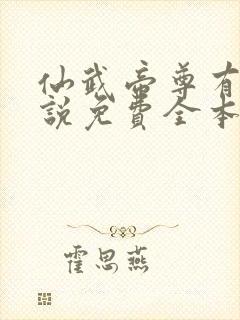 仙武帝尊有
説免費全本
霍思燕